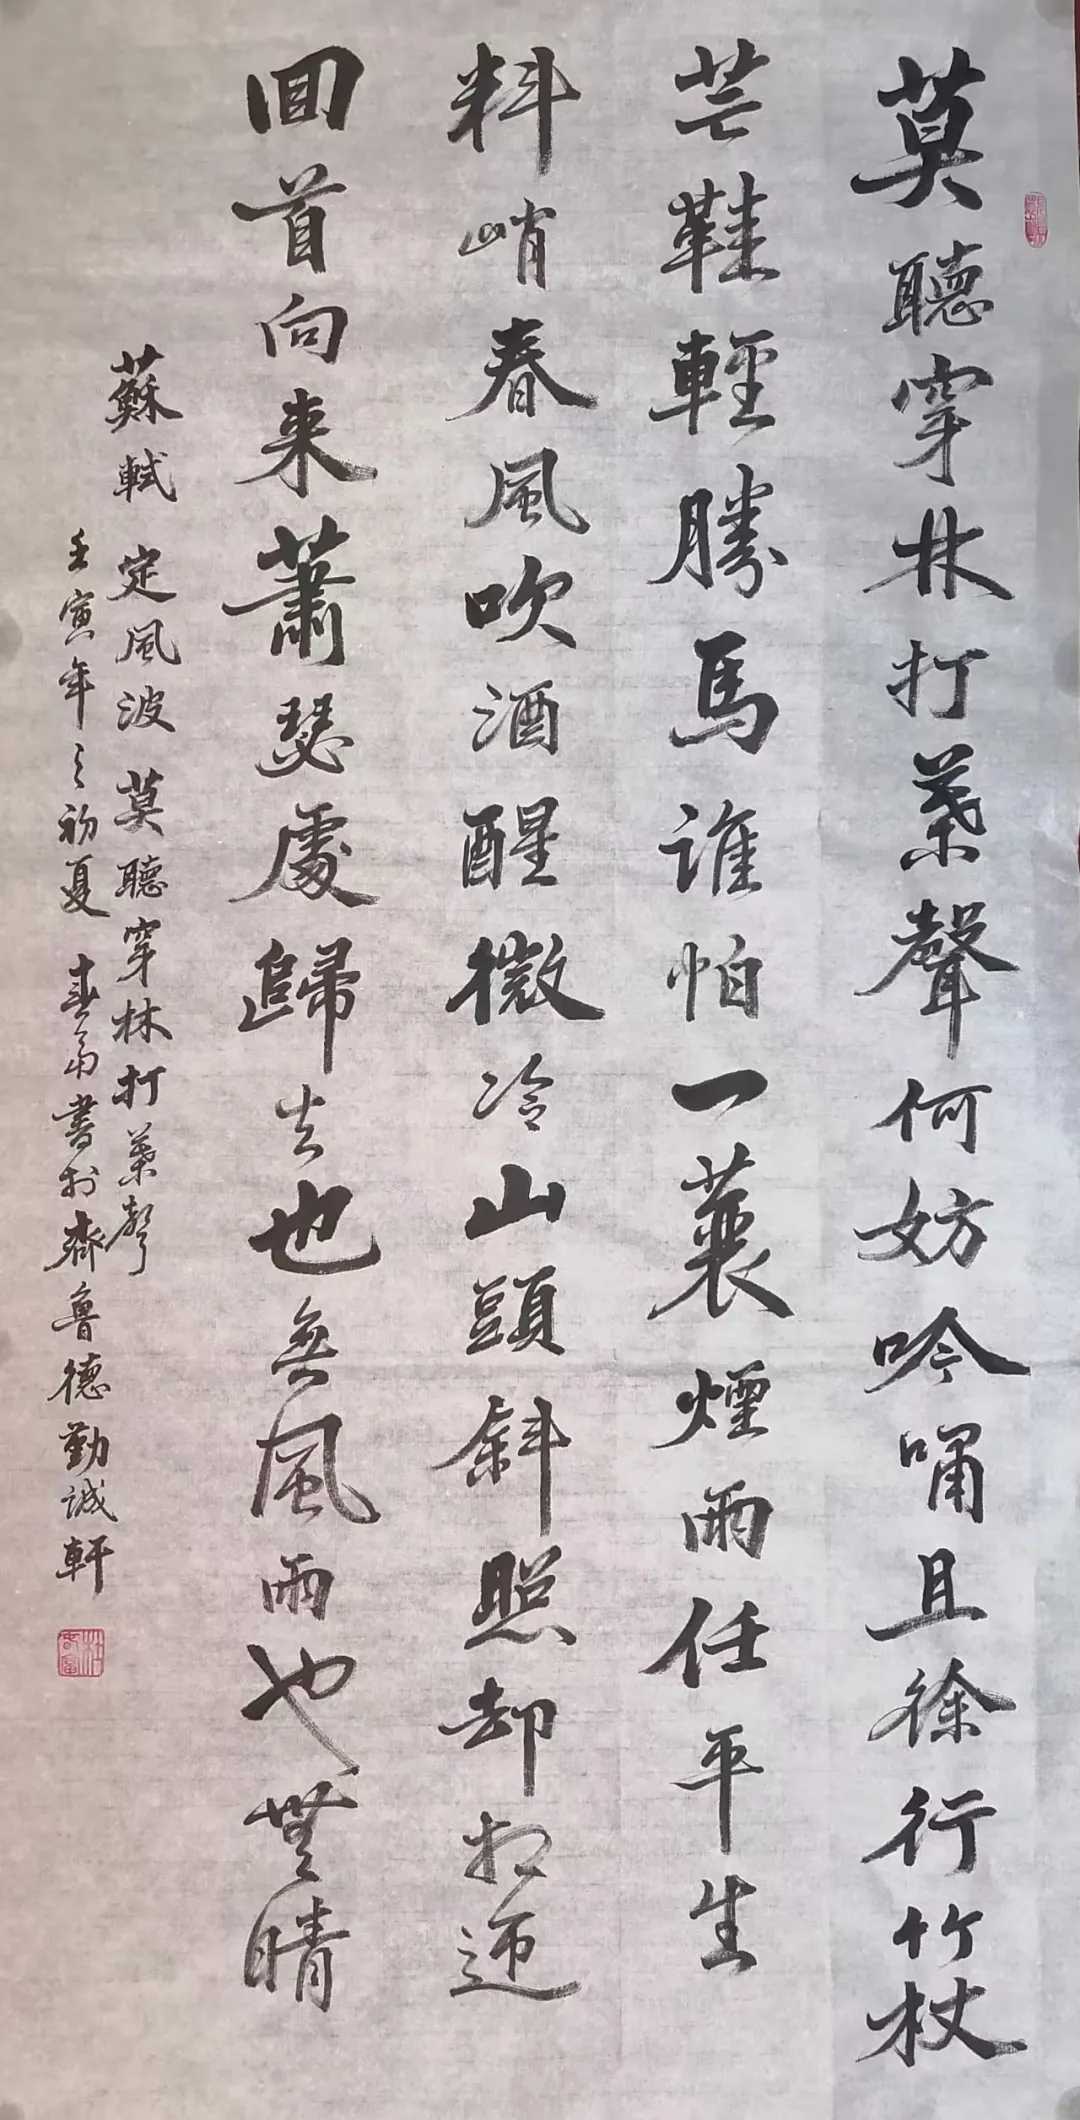 莫聽穿林打葉聲何妨吟嘯且徐行竹杖
芒鞋輕勝馬誰怕一蓑煙雨任平生
料峭春風吹酒醒微冷山頭斜照却相迎
回首向来蕭瑟處歸去也無風雨也無晴
蘇軾 定風波 莫聽穿林打葉聲
壬寅年之初夏 書於齊魯德勤誠軒